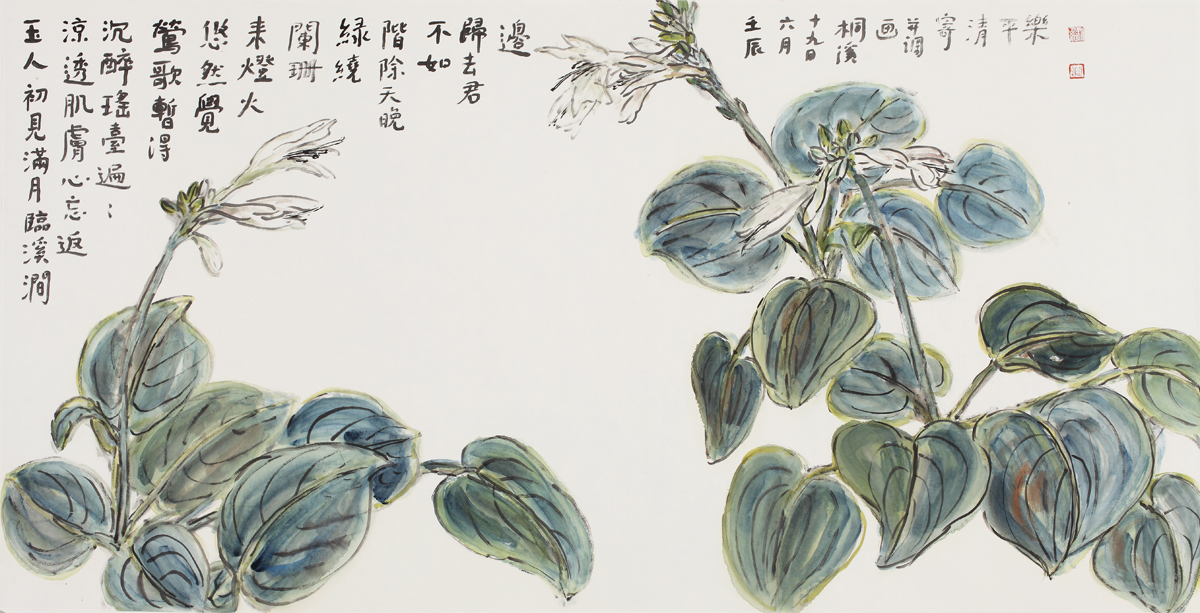 玉人初見滿月臨溪澗
涼透肌膚心忘返
沉醉瑤臺遍：
鶯歌暫得
悠然覺
来燈火
闌珊
綠繞
階除天晚
不如
歸去君
邊
壬辰
六月
十九日
桐溪
画
并調
寄
清
平
樂